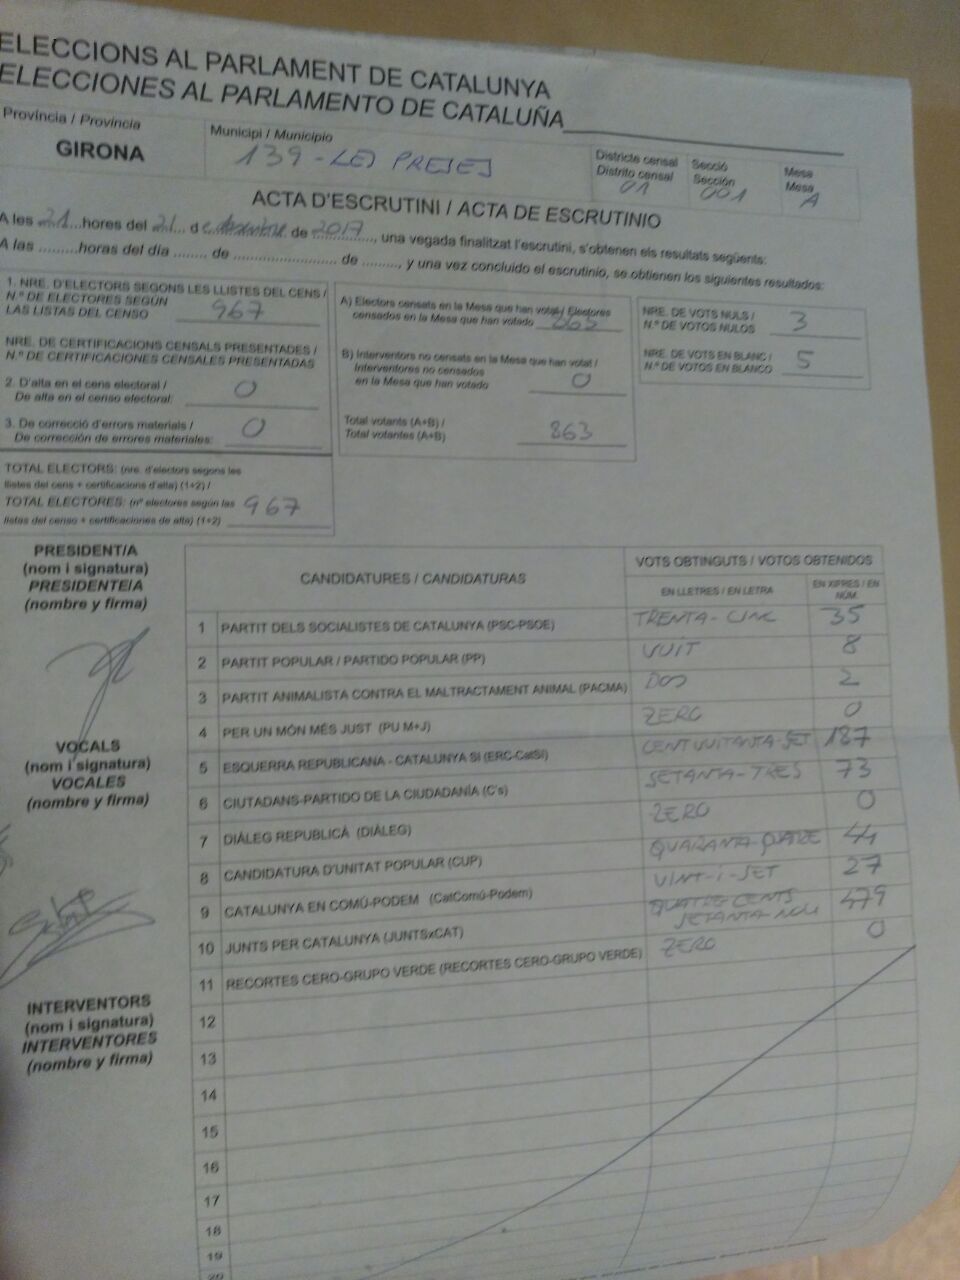 ELECCIONS AL PARLAMENT DE CATALUNYA
ELECCIONES AL PARLAMENTO DE CATALUÑA
Província / Provincia
GIRONA
Municipi / Municipio
139 - LES PRESES
Districte censal
Distrito censal
01
Secció
Sección
001
Mesa
Mesa
A
ACTA D'ESCRUTINI / ACTA DE ESCRUTINIO
A les 21 hores del 21 de desembre de 2017, una vegada finalitzat l'escrutini, s'obtenen els resultats següents:
A las .........horas del día ........ de ........................ de ........., y una vez concluido el escrutinio, se obtienen los siguientes resultados:
1. NRE. D'ELECTORS SEGONS LES LLISTES DEL CENS /
N.º DE ELECTORES SEGÚN
LAS LISTAS DEL CENSO 967
NRE. DE CERTIFICACIONS CENSALS PRESENTADES /
N.º DE CERTIFICACIONES CENSALES PRESENTADAS
2. D'alta en el cens electoral /
De alta en el censo electoral: 0
3. De correcció d'errors materials /
De corrección de errores materiales: 0
TOTAL ELECTORS: (nre. d'electors segons les
llistes del cens + certificacions d'alta) (1+2) /
TOTAL ELECTORES: (nº electores según las
listas del censo + certificaciones de alta) (1+2) 967
A) Electors censats en la Mesa que han votat / Electores
censados en la Mesa que han votado 863
B) Interventors no censats en la Mesa que han votat /
Interventores no censados
en la Mesa que han votado 0
Total votants (A+B) /
Total votantes (A+B) 863
NRE. DE VOTS NULS /
N.º DE VOTOS NULOS 3
NRE. DE VOTS EN BLANC /
N.º DE VOTOS EN BLANCO 5
PRESIDENT/A
(nom i signatura)
PRESIDENTE/A
(nombre y firma)
VOCALS
(nom i signatura)
VOCALES
(nombre y firma)
INTERVENTORS
(nom i signatura)
INTERVENTORES
(nombre y firma)
CANDIDATURES / CANDIDATURAS
VOTS OBTINGUTS / VOTOS OBTENIDOS
EN LLETRES / EN LETRA
EN XIFRES / EN NÚM.
1 PARTIT DELS SOCIALISTES DE CATALUNYA (PSC-PSOE) TRENTA-CINC 35
2 PARTIT POPULAR / PARTIDO POPULAR (PP) VUIT 8
3 PARTIT ANIMALISTA CONTRA EL MALTRACTAMENT ANIMAL (PACMA) DOS 2
4 PER UN MÓN MÉS JUST (PU M+J) ZERO 0
5 ESQUERRA REPUBLICANA - CATALUNYA SÍ (ERC-CatSí) CENT VUITANTA-SET 187
6 CIUTADANS-PARTIDO DE LA CIUDADANÍA (C's) SETANTA-TRES 73
7 DIÀLEG REPUBLICÀ (DIÀLEG) ZERO 0
8 CANDIDATURA D'UNITAT POPULAR (CUP) QUARANTA-QUATRE 44
9 CATALUNYA EN COMÚ-PODEM (CatComú-Podem) VINT-I-SET 27
10 JUNTS PER CATALUNYA (JUNTSxCAT) QUATRE CENTS SETANTA-NOU 479
11 RECORTES CERO-GRUPO VERDE (RECORTES CERO-GRUPO VERDE) ZERO 0
12
13
14
15
16
17
18
19
20